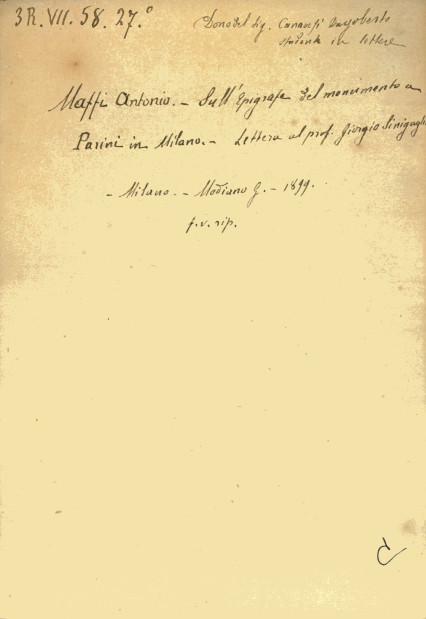 3 R. VII. 58. 27.°
Dono del Sig. Dagoberto
studente in lettere
Maffi Antonio. - Sull'Epigrafe del monumento a
Parini in Milano. - Lettera al prof. Giorgio Sinigaglia
- Milano. - Modiano G. - 1899.
f. v. rip.